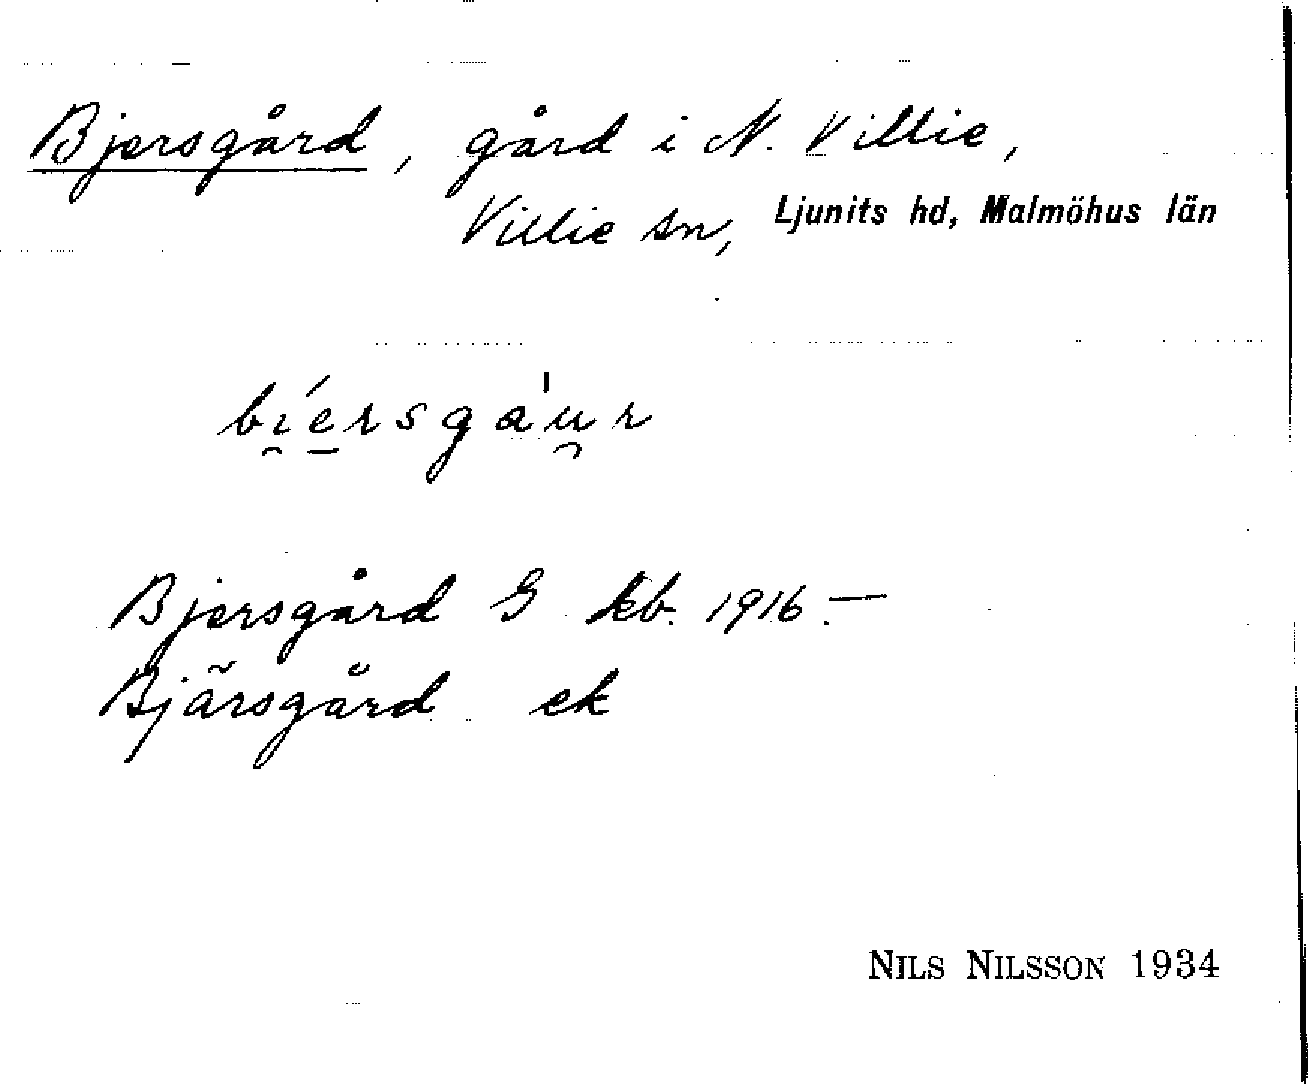 Bjersgård, gård i N. Villie,
Villie sn, Ljunits hd, Malmöhus län
bi̯é̠rsga'u̯r
Bjersgård G kb. 1916.—
Bjärsgård ek
NILS NILSSON 1934